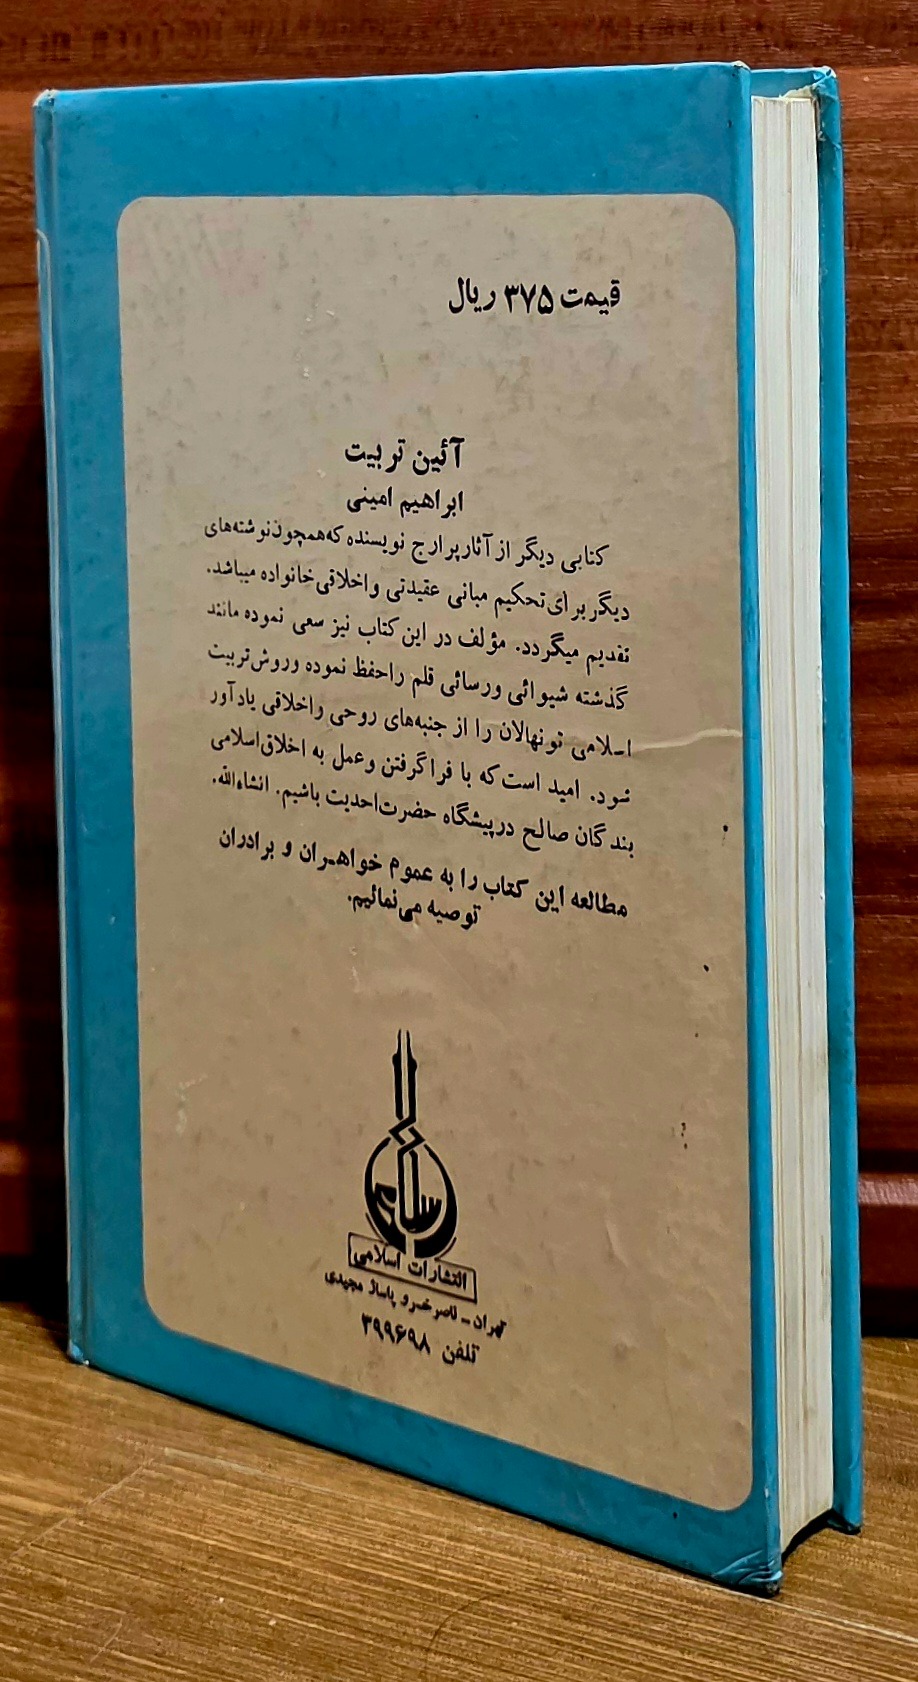 قیمت ۳۷۵ ریال
آئین تربیت
ابراهیم امینی
کتابی دیگر از آثار پرارج نویسنده که همچون نوشته‌های
دیگر برای تحکیم مبانی عقیدتی و اخلاقی خانواده میباشد.
تقدیم میگردد. مؤلف در این کتاب نیز سعی نموده مانند
گذشته شیوائی و رسائی قلم را حفظ نموده و روش تربیت
اسلامی نونهالان را از جنبه‌های روحی و اخلاقی یادآور
شود. امید است که با فراگرفتن و عمل به اخلاق اسلامی
بندگان صالح در پیشگاه حضرت احدیت باشیم. انشاءالله.
مطالعه این کتاب را به عموم خواهران و برادران
توصیه می‌نمائیم.
اسلامی
انتشارات اسلامی
تهران - ناصرخسرو پاساژ مجیدی
تلفن ۳۹۹۶۹۸